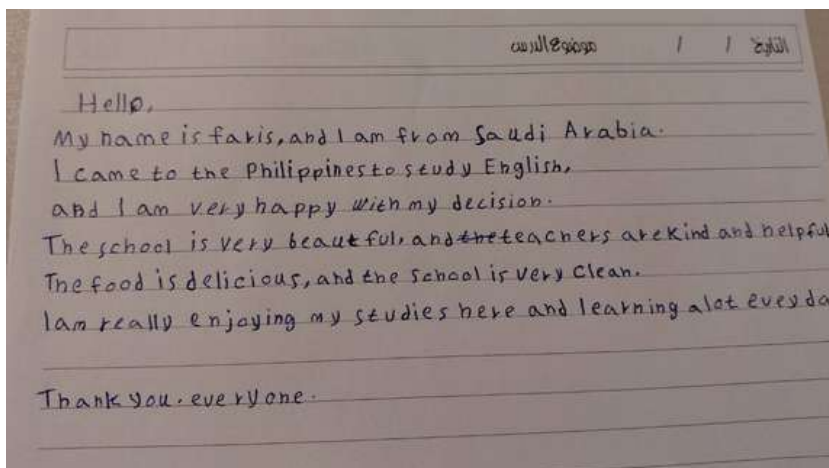 التاريخ / / موضوع الدرس
Hello,
My name is faris, and I am from Saudi Arabia.
I came to the Philippines to study English,
and I am very happy with my decision.
The school is very beautful, and the teachers are kind and helpful
The food is delicious, and the school is very clean.
Iam really enjoying my studies here and learning alot evey da
Thank you. everyone.